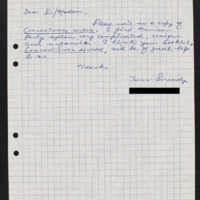 Dear Sir/Madam
Please mail me a copy of
Conventional wisdom. I find American
Party system very complicated, unique
and impossible. I think your booklet,
Conventional wisdom, will be of great help
to me.
Thanks
Yours Sincerely